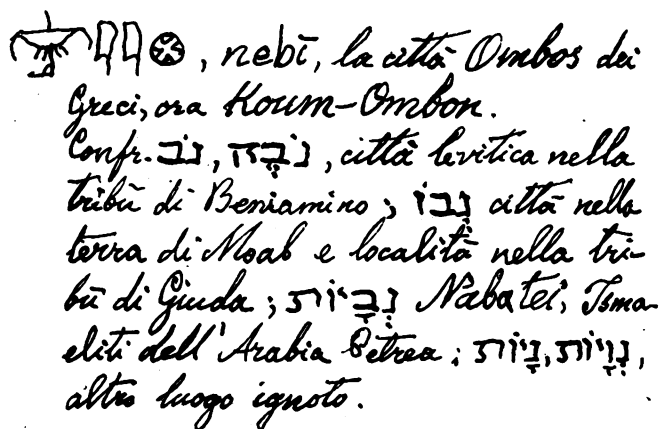 𓋞𓇋𓇋𓊖, nebī, la città Ombos dei
Greci, ora Koum-Ombon.
Confr. נֹב, נֹבֶה, città levitica nella
tribù di Beniamino; נְבוֹ città nella
terra di Moab e località nella tri-
bù di Giuda; נְבָיוֹת Nabatei, Isma-
eliti dell'Arabia Petrea; נְוָיוֹת, נָיוֹת,
altro luogo ignoto.